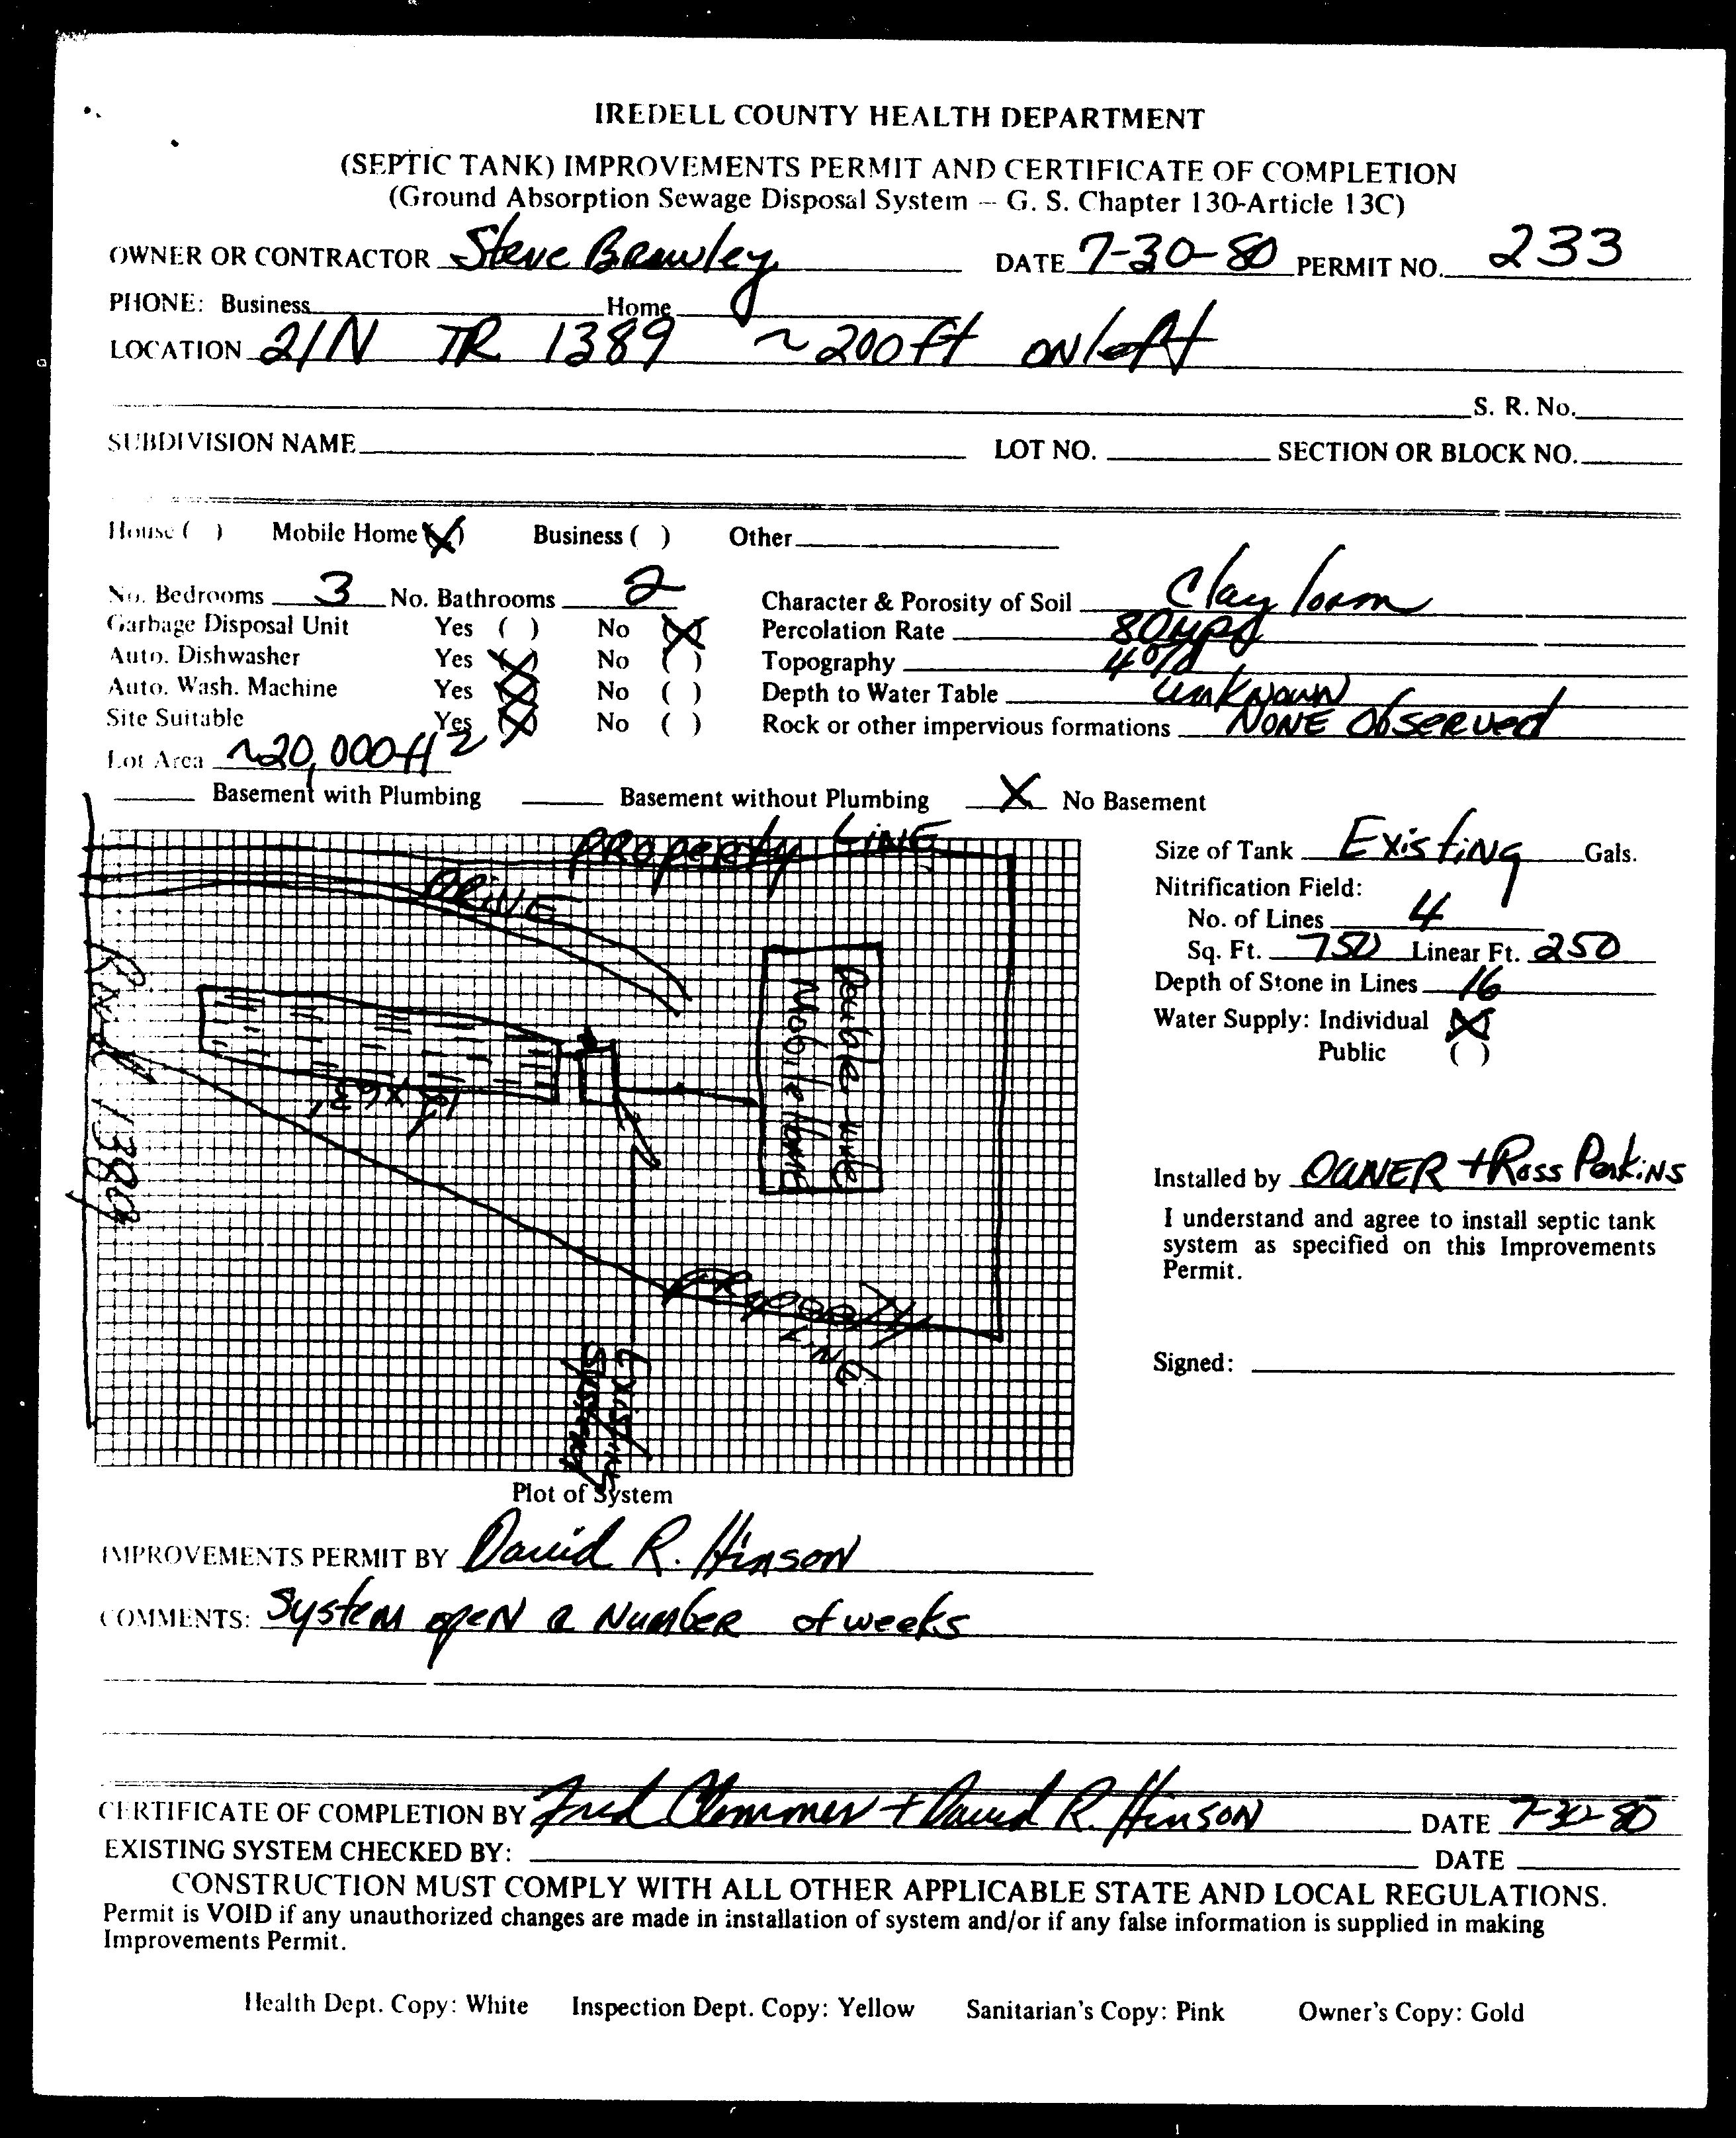 IREDELL COUNTY HEALTH DEPARTMENT
(SEPTIC TANK) IMPROVEMENTS PERMIT AND CERTIFICATE OF COMPLETION
(Ground Absorption Sewage Disposal System -- G. S. Chapter 130-Article 13C)
OWNER OR CONTRACTOR Steve Brawley DATE 7-30-80 PERMIT NO. 233
PHONE: Business Home
LOCATION 21N TR 1389 ~200ft ON left
S. R. No.
SUBDIVISION NAME LOT NO. SECTION OR BLOCK NO.
House ( ) Mobile Home (X) Business ( ) Other
No. Bedrooms 3 No. Bathrooms 2 Character & Porosity of Soil Clay loam
Garbage Disposal Unit Yes ( ) No (X) Percolation Rate 80
Auto. Dishwasher Yes (X) No ( ) Topography 4%
Auto. Wash. Machine Yes (X) No ( ) Depth to Water Table unknown
Site Suitable Yes (X) No ( ) Rock or other impervious formations NONE Observed
Lot Area ~20,000 ft2
Basement with Plumbing Basement without Plumbing X No Basement
PROPERTY LINE
DRIVE
Double wide
Mobile Home
1389
PROPERTY
LINE
Existing
System
Size of Tank Existing Gals.
Nitrification Field:
No. of Lines 4
Sq. Ft. 750 Linear Ft. 250
Depth of Stone in Lines 16
Water Supply: Individual (X)
Public ( )
Installed by OWNER + Ross Perkins
I understand and agree to install septic tank
system as specified on this Improvements
Permit.
Signed:
Plot of System
IMPROVEMENTS PERMIT BY David R. Hinson
COMMENTS: System open a Number of weeks
CERTIFICATE OF COMPLETION BY Fred Clemmer + David R. Hinson DATE 7-30-80
EXISTING SYSTEM CHECKED BY: DATE
CONSTRUCTION MUST COMPLY WITH ALL OTHER APPLICABLE STATE AND LOCAL REGULATIONS.
Permit is VOID if any unauthorized changes are made in installation of system and/or if any false information is supplied in making
Improvements Permit.
Health Dept. Copy: White Inspection Dept. Copy: Yellow Sanitarian's Copy: Pink Owner's Copy: Gold